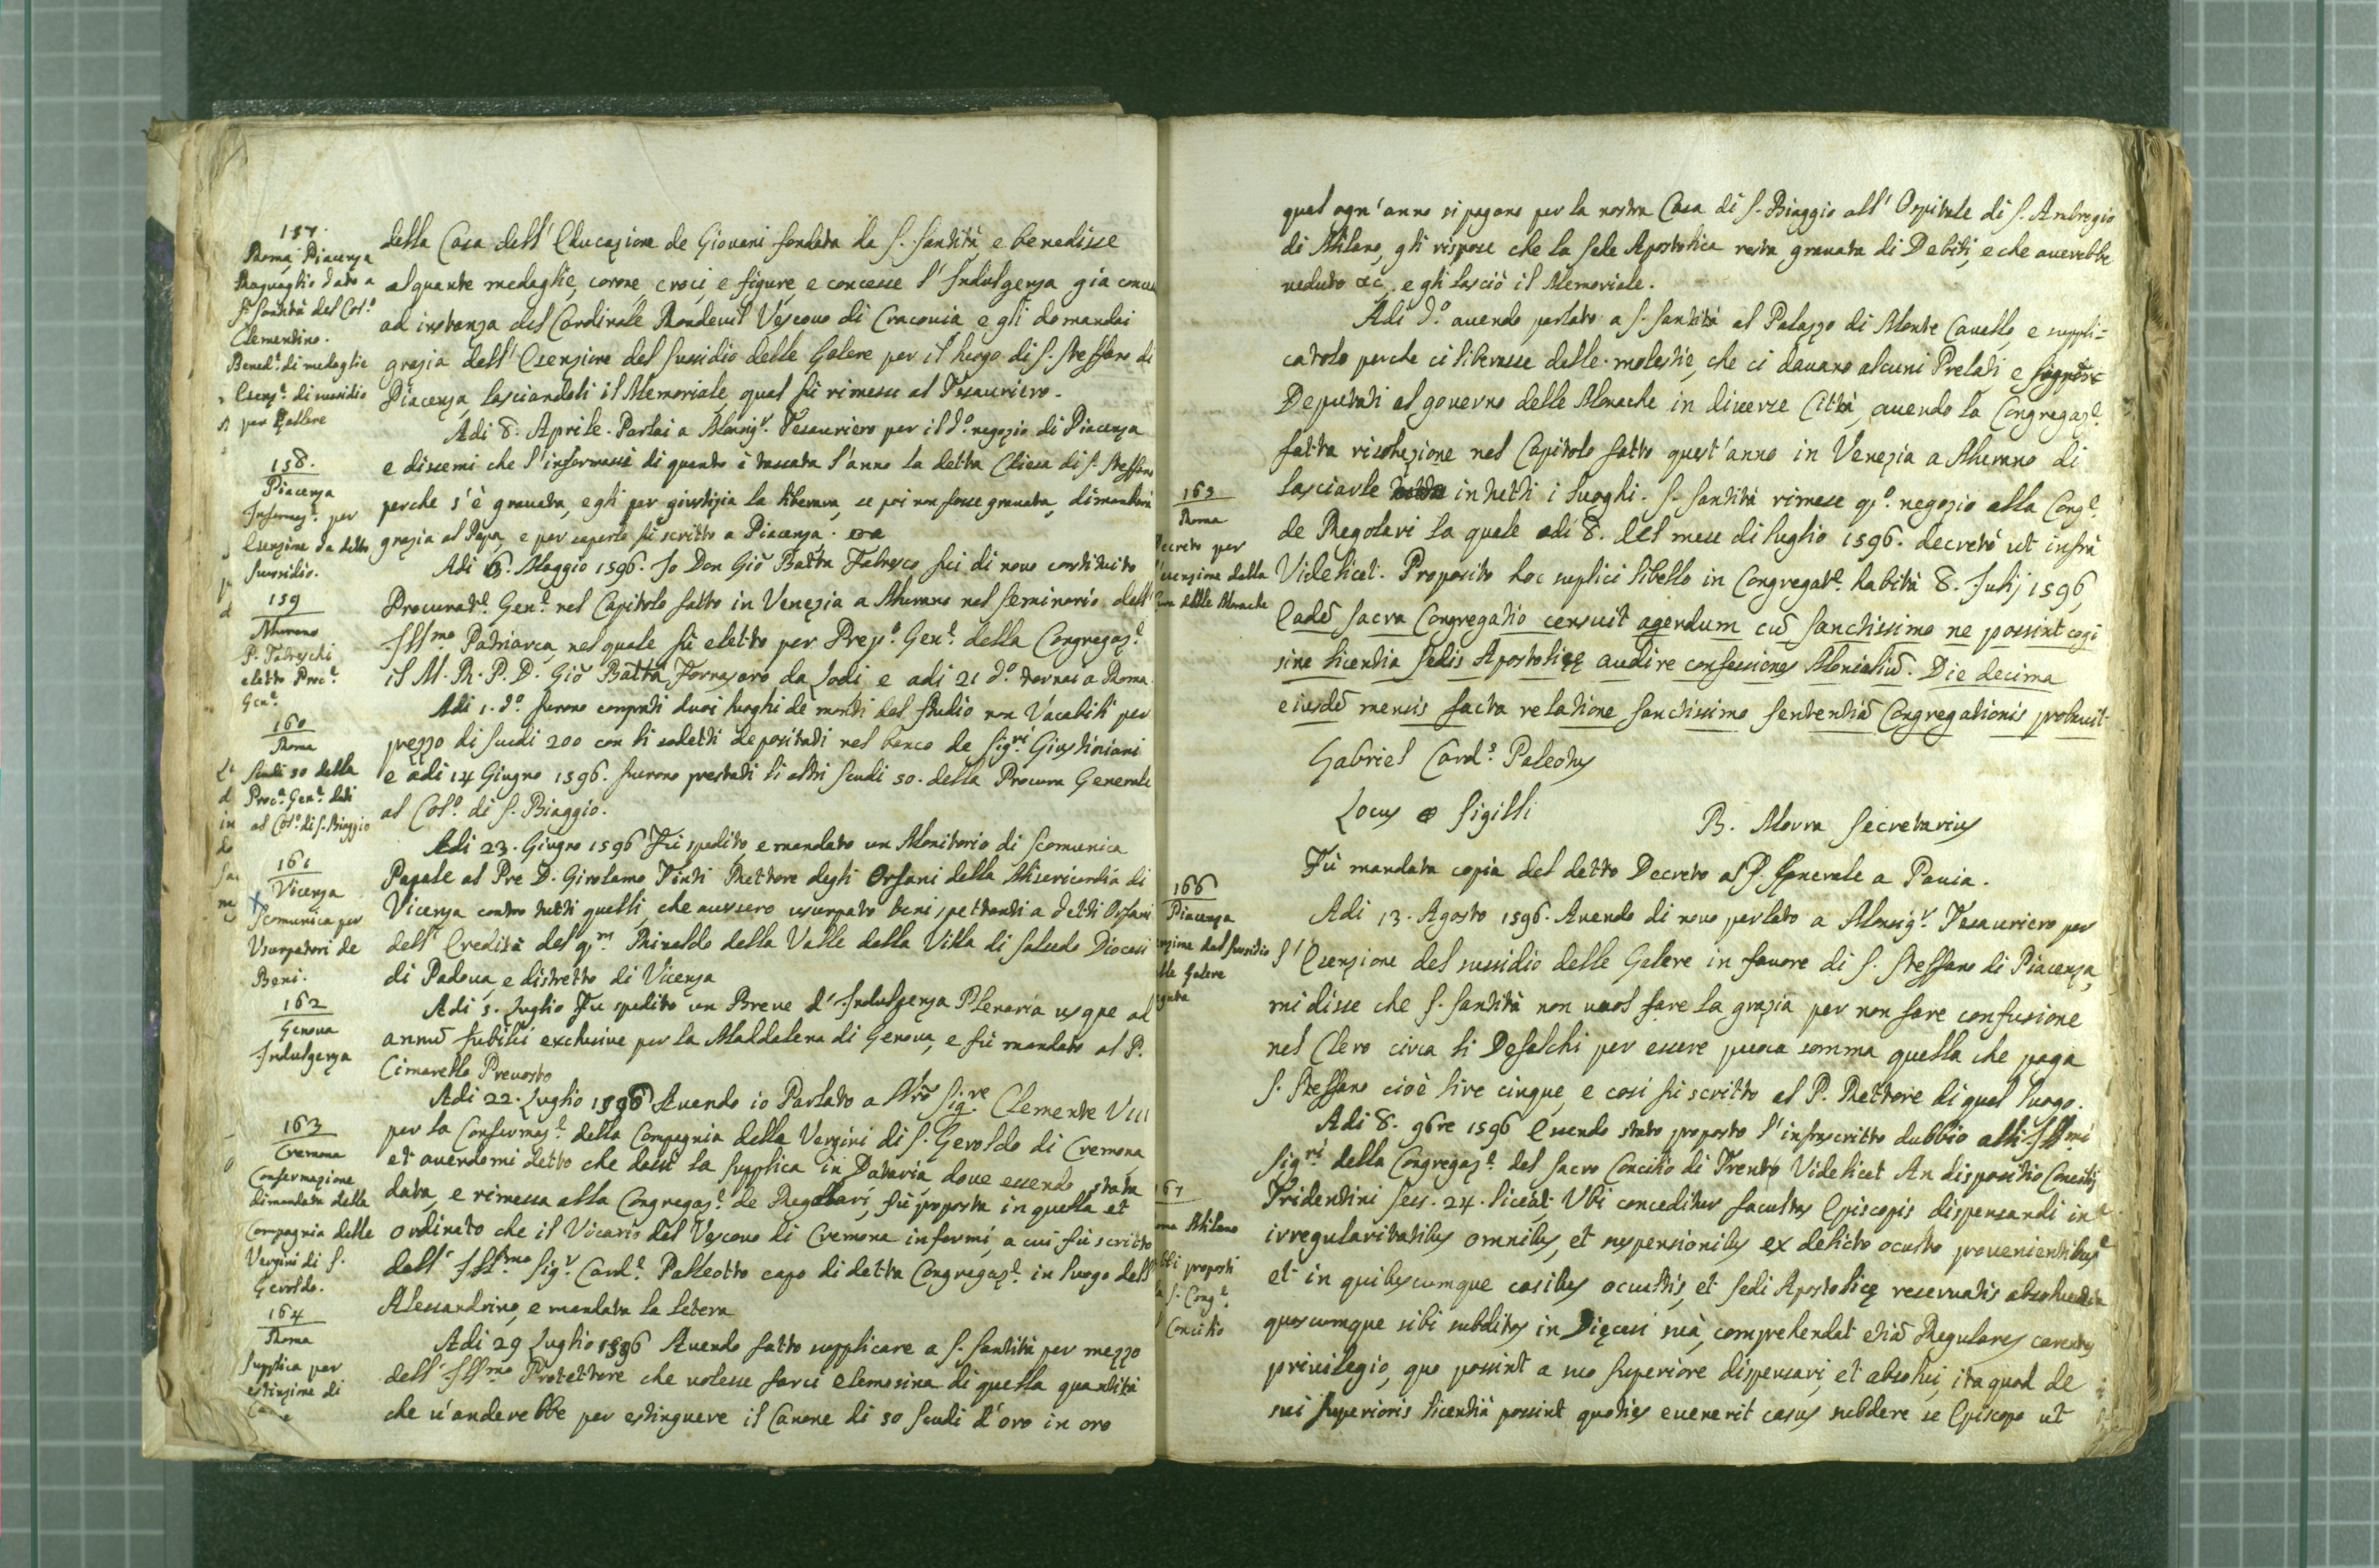 157.
Roma, Piacenza
Raguaglio dato a
S. Santità del Col.o
Clementino.
Bened.e di medaglie
Esenz.e di sussidio
per Gallere
della Casa dell' Educazione de Giovani fondata da S. Santità e benedisse
alquante medaglie, corone, croci, e figure, e concesse l' Indulgenza già
ad instanza del Cardinale Rondevil Vescovo di Cracovia, e gli domandai
grazia dell' Esenzione del sussidio delle Galere per il luogo di S. Steffano di
Piacenza, lasciandoli il Memoriale, qual fù rimesso al Tesauriero.
158.
Piacenza
Informaz.e per
Esenzione da detto
sussidio.
Adi 8. Aprile. Parlai a Monsig.r Tesauriero per il d.o negozio di Piacenza
e dissemi che s'informassi di quanto è tassata l'anno la detta Chiesa di S. Steffano
perche s'è gravata, egli per giustizia la liberava, se poi non fosse gravata, dimandarà
grazia al Papa, e per saperlo fù scritto a Piacenza.
159
Murano
P. Fabreschi
eletto Proc.e
Gen.e
Adi 6. Maggio 1596. Io Don Giō Batta Fabresco fui di novo constituito
Procurat.e Gen.e nel Capitolo fatto in Venezia a Murano nel Seminario dell'
Ill.mo Patriarca, nel quale fù eletto per Prep.o Gen.e della Congregaz.e
il M. R. P. D. Giō Batta Fornasaro da Lodi, e adi 21 d.o tornai a Roma.
160
Roma
Scudi 50 della
Proc.a Gen.e dati
al Col.o di S. Biaggio
Adi 1. d.o furono comprati duoi luoghi de monti del studio non Vacabili per
prezzo di scudi 200 con li sodetti depositati nel banco de Sig.ri Giustiniani
e adi 14 Giugno 1596. furono prestati li altri scudi 50. della Procura Generale
al Col.o di S. Biaggio.
161
Vicenza
Scomunica per
Usurpatori de
Beni.
Adi 23. Giugno 1596 Fù spedito, e mandato un Monitorio di Scomunica
Papale al Pre D. Girolamo Tinti Rettore degli Orfani della Misericordia di
Vicenza contro tutti quelli, che avessero usurpato beni spettanti a detti Orfani
dell' Eredità del q.m Rinaldo della Valle della Villa di Saludo Diocesi
di Padova, e distretto di Vicenza
162
Genova
Indulgenza
Adi 5. Luglio Fù spedito un Breve d' Indulgenza Plenaria usque ad
annū Jubilei exclusive per la Maddalena di Genova, e fù mandato al P.
Cimarello Prevosto
163
Cremona
Confermazione
dimandata della
Compagnia delle
Vergini di S.
Geroldo.
Adi 22. Luglio 1596 Avendo io Parlato a Nrō Sig.re Clemente VIII
per la Confermaz.e della Compagnia delle Vergini di S. Geroldo di Cremona,
et avendomi detto che dassi la supplica in Dataria dove essendo stata
data, e rimessa alla Congregaz.e de Regolari, fù proposta in quella et
ordinato che il Vicario del Vescovo di Cremona informi, a cui fù scritto
dall' Ill.mo Sig.r Card.e Palleotto capo di detta Congregaz.e in luogo dell'
Alessandrino, e mandata la letera
164
Roma
Supplica per
estinzione di
Adi 29 Luglio 1596 Avendo fatto supplicare a S. Santità per mezzo
dell' Ill.mo Protettore che volesse farci elemosina di quella quantità
che v'anderebbe per estinguere il Canone di 50 scudi d'oro in oro
qual ogn'anno si pagano per la nostra Casa di S. Biaggio all' Ospitale di S. Ambrogio
di Milano, gli rispose che la Sede Apostolica resta gravata di Debiti, e che averebbe
veduto &c. e gli lasciò il Memoriale.
Adi d.o avendo parlato a S. Santità al Palazzo di Monte Cavello, e suppli=
catolo perche ci liberasse delle molestie, che ci davano alcuni Prelati e Signori
Deputati al governo delle Monache in diverse Città, avendo la Congregaz.e
fatta risoluzione nel Capitolo fatto quest'anno in Venezia a Murano di
165
Roma
Decreto per
esenzione dalla
delle Monache
lasciarle in tutti i luoghi. S. Santità rimese q.o negozio alla Cong.e
de Regolari la quale adi 8. del mese di luglio 1596. decretò ut infrà
Videlicet. Proposito hoc suplici libello in Congregat.e habità 8. Julij 1596,
Eadē Sacra Congregatio censuit agendum cū Sanctissimo ne possint cogi
sine licentia Sedis Apostolicę audire confessiones Monialiū. Die decima
eiusdē mensis facta relatione Sanctissimo sententiā Congregationis probavit.
Gabriel Card.s Paleotus
Locus Sigilli
B. Morra Secretarius
Fù mandata copia del detto Decreto al P. Generale a Pavia.
166
Piacenza
dal sussidio
Galere
Adi 13. Agosto 1596. Avendo di novo parlato a Monsig.r Tesauriero per
l' Esenzione del sussidio delle Galere in favore di S. Steffano di Piacenza,
mi disse che S. Santità non vuol fare la grazia per non fare confusione
nel Clero circa li Defalchi per essere puoca somma quella che paga
S. Steffano cioè lire cinque, e così fù scritto al P. Rettore di quel luogo.
Milano
proposti
S. Cong.e
Concilio
Adi 8. 9bre 1596 Essendo stato proposto l'infrascritto dubbio alli Ill.mi
Sig.ri della Congregaz.e del Sacro Concilio di Trento Videlicet An dispositio Concilij
Tridentini sess. 24. liceat; Ubi conceditur facultas Episcopis dispensandi in
irregularitatibus omnibus, et suspensionibus ex delicto oculto provenientibus
et in quibuscumque casibus ocultis, et Sedi Apostolicę reservatis absolvendi
quoscumque sibi subditos in Dięcesi suà, comprehendat etiā Regulares
privilegio, quo possint a suo Superiore dispensari, et absolvi, ita quod de
sui Superioris licentià possint quoties evenerit casus subdere se Episcopo ut